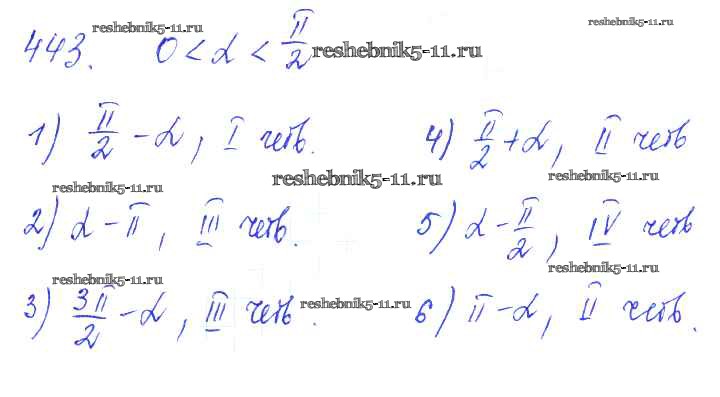 reshebnik5-11.ru reshebnik5-11.ru
443. 0 < α < π/2 reshebnik5-11.ru
1) π/2 - α, I четв. 4) π/2 + α, II четв
reshebnik5-11.ru reshebnik5-11.ru reshebnik5-11.ru
2) α - π, III четв. 5) α - π/2, IV четв
reshebnik5-11.ru reshebnik5-11.ru
3) 3π/2 - α, III четв. reshebnik5-11.ru 6) π - α, II четв.